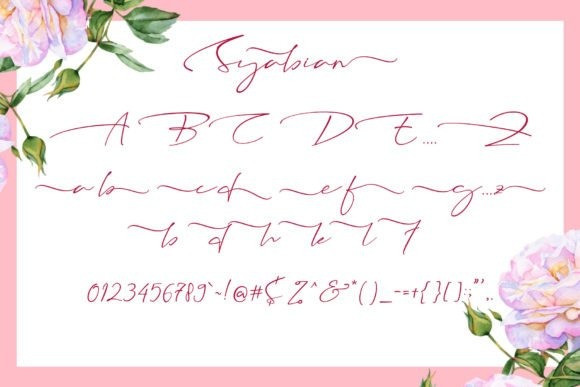 Syabian
A B C D E.... Z
ab cd ef g...z
b d h k l t
0123456789`~!@#$%^&*()_-=+{}[]:;"',.